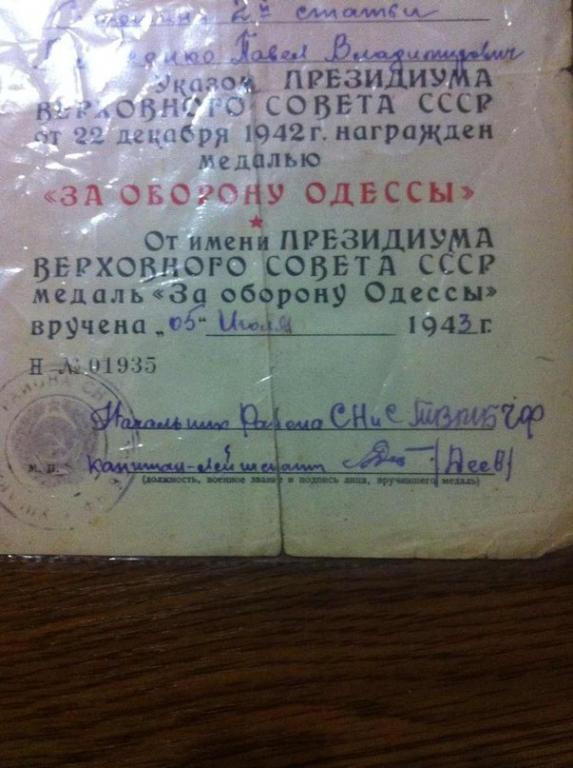 2й статьи
Павел Владимирович
Указом ПРЕЗИДИУМА
ВЕРХОВНОГО СОВЕТА СССР
от 22 декабря 1942 г. награжден
медалью
«ЗА ОБОРОНУ ОДЕССЫ»
От имени ПРЕЗИДИУМА
ВЕРХОВНОГО СОВЕТА СССР
медаль «За оборону Одессы»
вручена „05" Июля 1943 г.
Н №01935
Начальник района СНиС ЧФ
м. п. капитан-лейтенант /Деев/
(должность, военное звание и подпись лица, вручившего медаль)